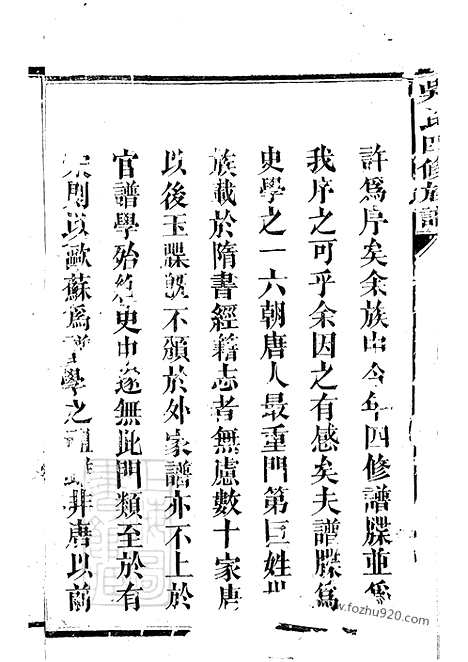 吳氏四修族譜
許爲序矣余族中今年四修譜牒並爲
我序之可乎余因之有感矣夫譜牒爲
史學之一六朝唐人最重門第巨姓世
族載於隋書經籍志者無慮數十家唐
以後玉牒既不頒於外家譜亦不上於
官譜學始絕史中遂無此門類至於有
宋則以歐蘇爲譜學之 非唐以前
www.fozhu920.com